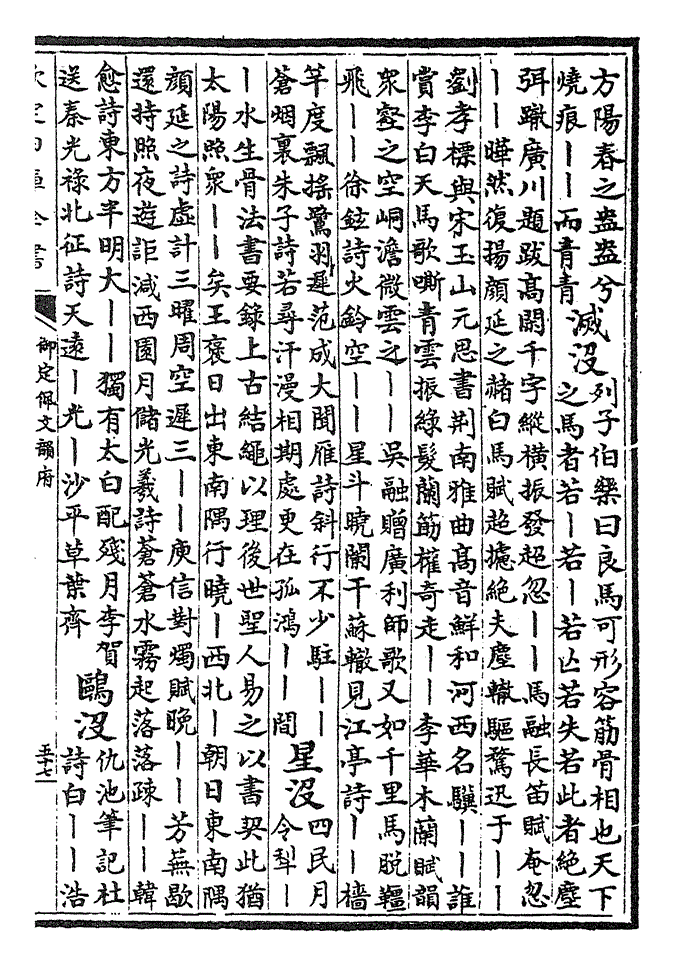 方陽春之盎盎兮
燒痕丨丨而青青
滅没
列子伯樂曰良馬可形容筋骨相也天下
之馬者若丨若丨若亡若失若此者絶塵
弭轍廣川題跋髙閎千字縱横振發超忽丨丨馬融長笛賦奄忽
丨丨曄然復揚顔延之赭白馬賦超攄絶夫塵轍驅騖迅于丨丨
劉孝標與宋玉山元思書荆南雅曲髙音鮮和河西名驥丨丨誰
賞李白天馬歌嘶青雲振緑髮蘭筋權奇走丨丨李華木蘭賦韻
衆壑之空峒澹微雲之丨丨吳融贈廣利師歌又如千里馬脱韁
飛丨丨徐鉉詩火鈴空丨丨星斗曉闌干蘇轍見江亭詩丨丨檣
竿度飄揺鷺羽遲范成大聞雁詩斜行不少駐丨丨
蒼烟裏朱子詩若尋汗漫相期處更在孤鴻丨丨間
星没
四民月
令犁丨
丨水生骨法書要錄上古結繩以理後世聖人易之以書契此猶
太陽照衆丨丨矣王襃日出東南隅行曉丨西北丨朝日東南隅
顔延之詩虛計三曜周空遲三丨丨庾信對燭賦晚丨丨芳蕪歇
還持照夜遊詎減西園月儲光羲詩蒼蒼水霧起落落疎丨丨韓
愈詩東方半明大丨丨獨有太白配殘月李賀
送秦光祿北征詩天遠丨光丨沙平草葉齊
鷗没
仇池筆記杜
詩白丨丨浩
欽定四庫全書
御定佩文韻府
五十七